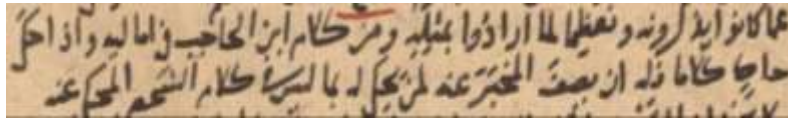 عما كانوا يذكرونه وتعظيما لما ارادوا بمثله ومن كلام ابن الحاجب في اماليه واذا حكى
حاك كلاما فله ان يصف المخبر عنه لمن يحكى له بما ليس في كلام الشخص المحكي عنه